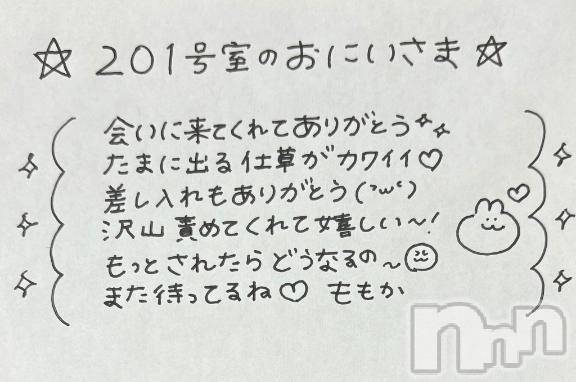 ☆201号室のおにいさま☆
会いに来てくれてありがとう
たまに出る仕草がカワイイ♡
差し入れもありがとう(´ω`)
沢山責めてくれて嬉しい〜!
もっとされたらどうなるの〜
また待ってるね♡ ももか
nnn